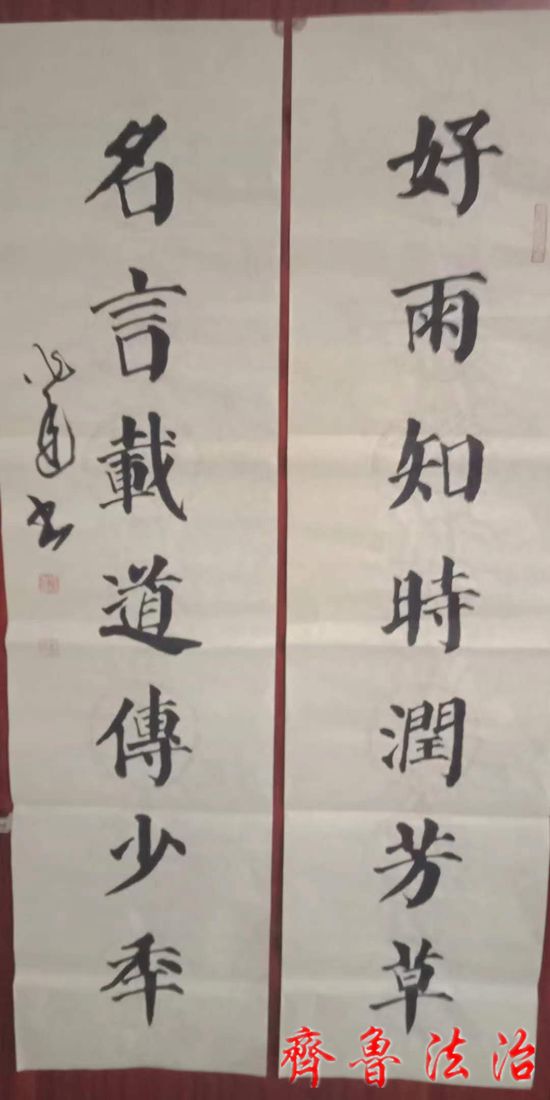 好雨知時潤芳草
名言載道傳少年
齊魯法治